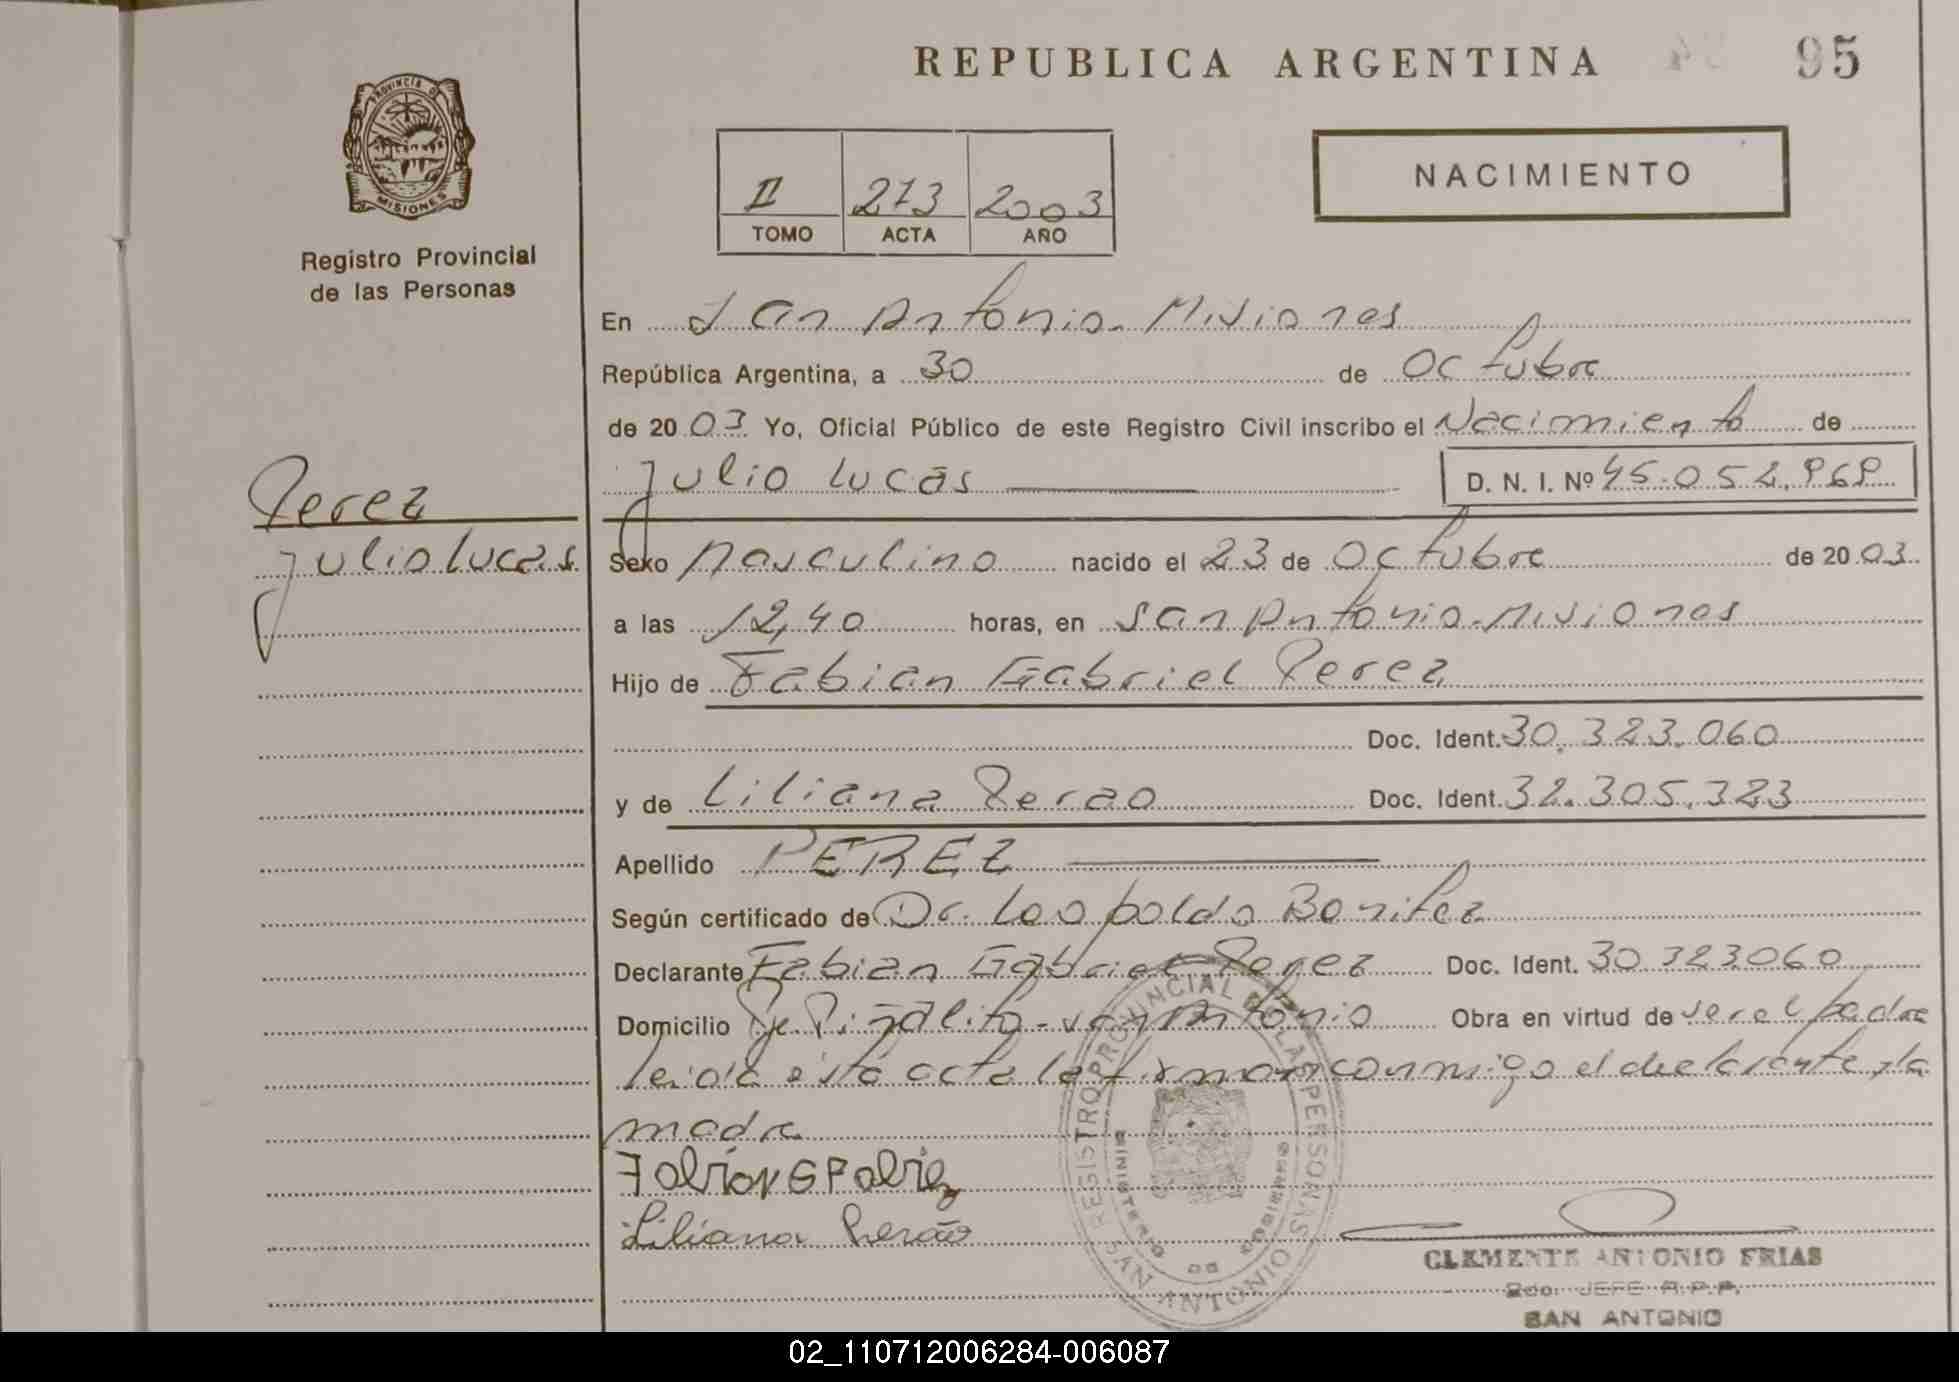 REPUBLICA ARGENTINA
95
PROVINCIA DE
MISIONES
Registro Provincial
de las Personas
II 273 2003
TOMO ACTA AÑO
NACIMIENTO
En San Antonio - Misiones
República Argentina, a 30 de Octubre
de 2003 Yo, Oficial Público de este Registro Civil inscribo el Nacimiento de
Julio Lucas D. N. I. Nº
Perez
Julio Lucas
Sexo Masculino nacido el 23 de Octubre de 2003
a las 12,40 horas, en San Antonio - Misiones
Hijo de Fabian Gabriel Perez
Doc. Ident. 30.323.060
y de Liliana Perao Doc. Ident. 32.305.323
Apellido PEREZ
Según certificado de Dr. Leopoldo Benitez
Declarante Fabian Gabriel Perez Doc. Ident. 30.323.060
Domicilio Pje. Piñalito - San Antonio Obra en virtud de ser el padre
leida esta acta la firman conmigo el declarante y la
madre
Liliana Perão
REGISTRO PROVINCIAL DE LAS PERSONAS
MINISTERIO DE GOBIERNO
SAN ANTONIO
CLEMENTE ANTONIO FRIAS
JEFE R.P.P.
SAN ANTONIO
02_110712006284-006087